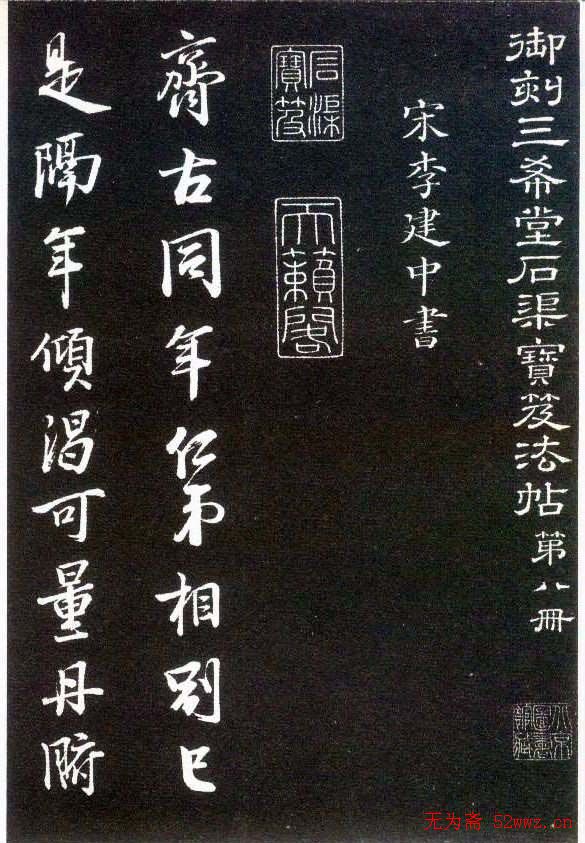 御刻三希堂石渠寶笈法帖第八冊
北京圖書館藏
宋李建中書
石渠寶笈
天籟閣
齊古同年仁弟相別已
是隔年傾渴可量丹腑
无为斋 52wwz.cn